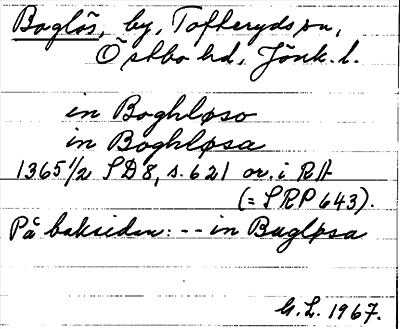 Boglös, by, Tofteryds sn,
Östbo hd, Jönk. l.
in Boghløso
in Boghløsa
1365 1/2 SD 8, s. 621 or. i RA
(= SRP 643).
På baksidan: -- in Bugløsa
G. L. 1967.